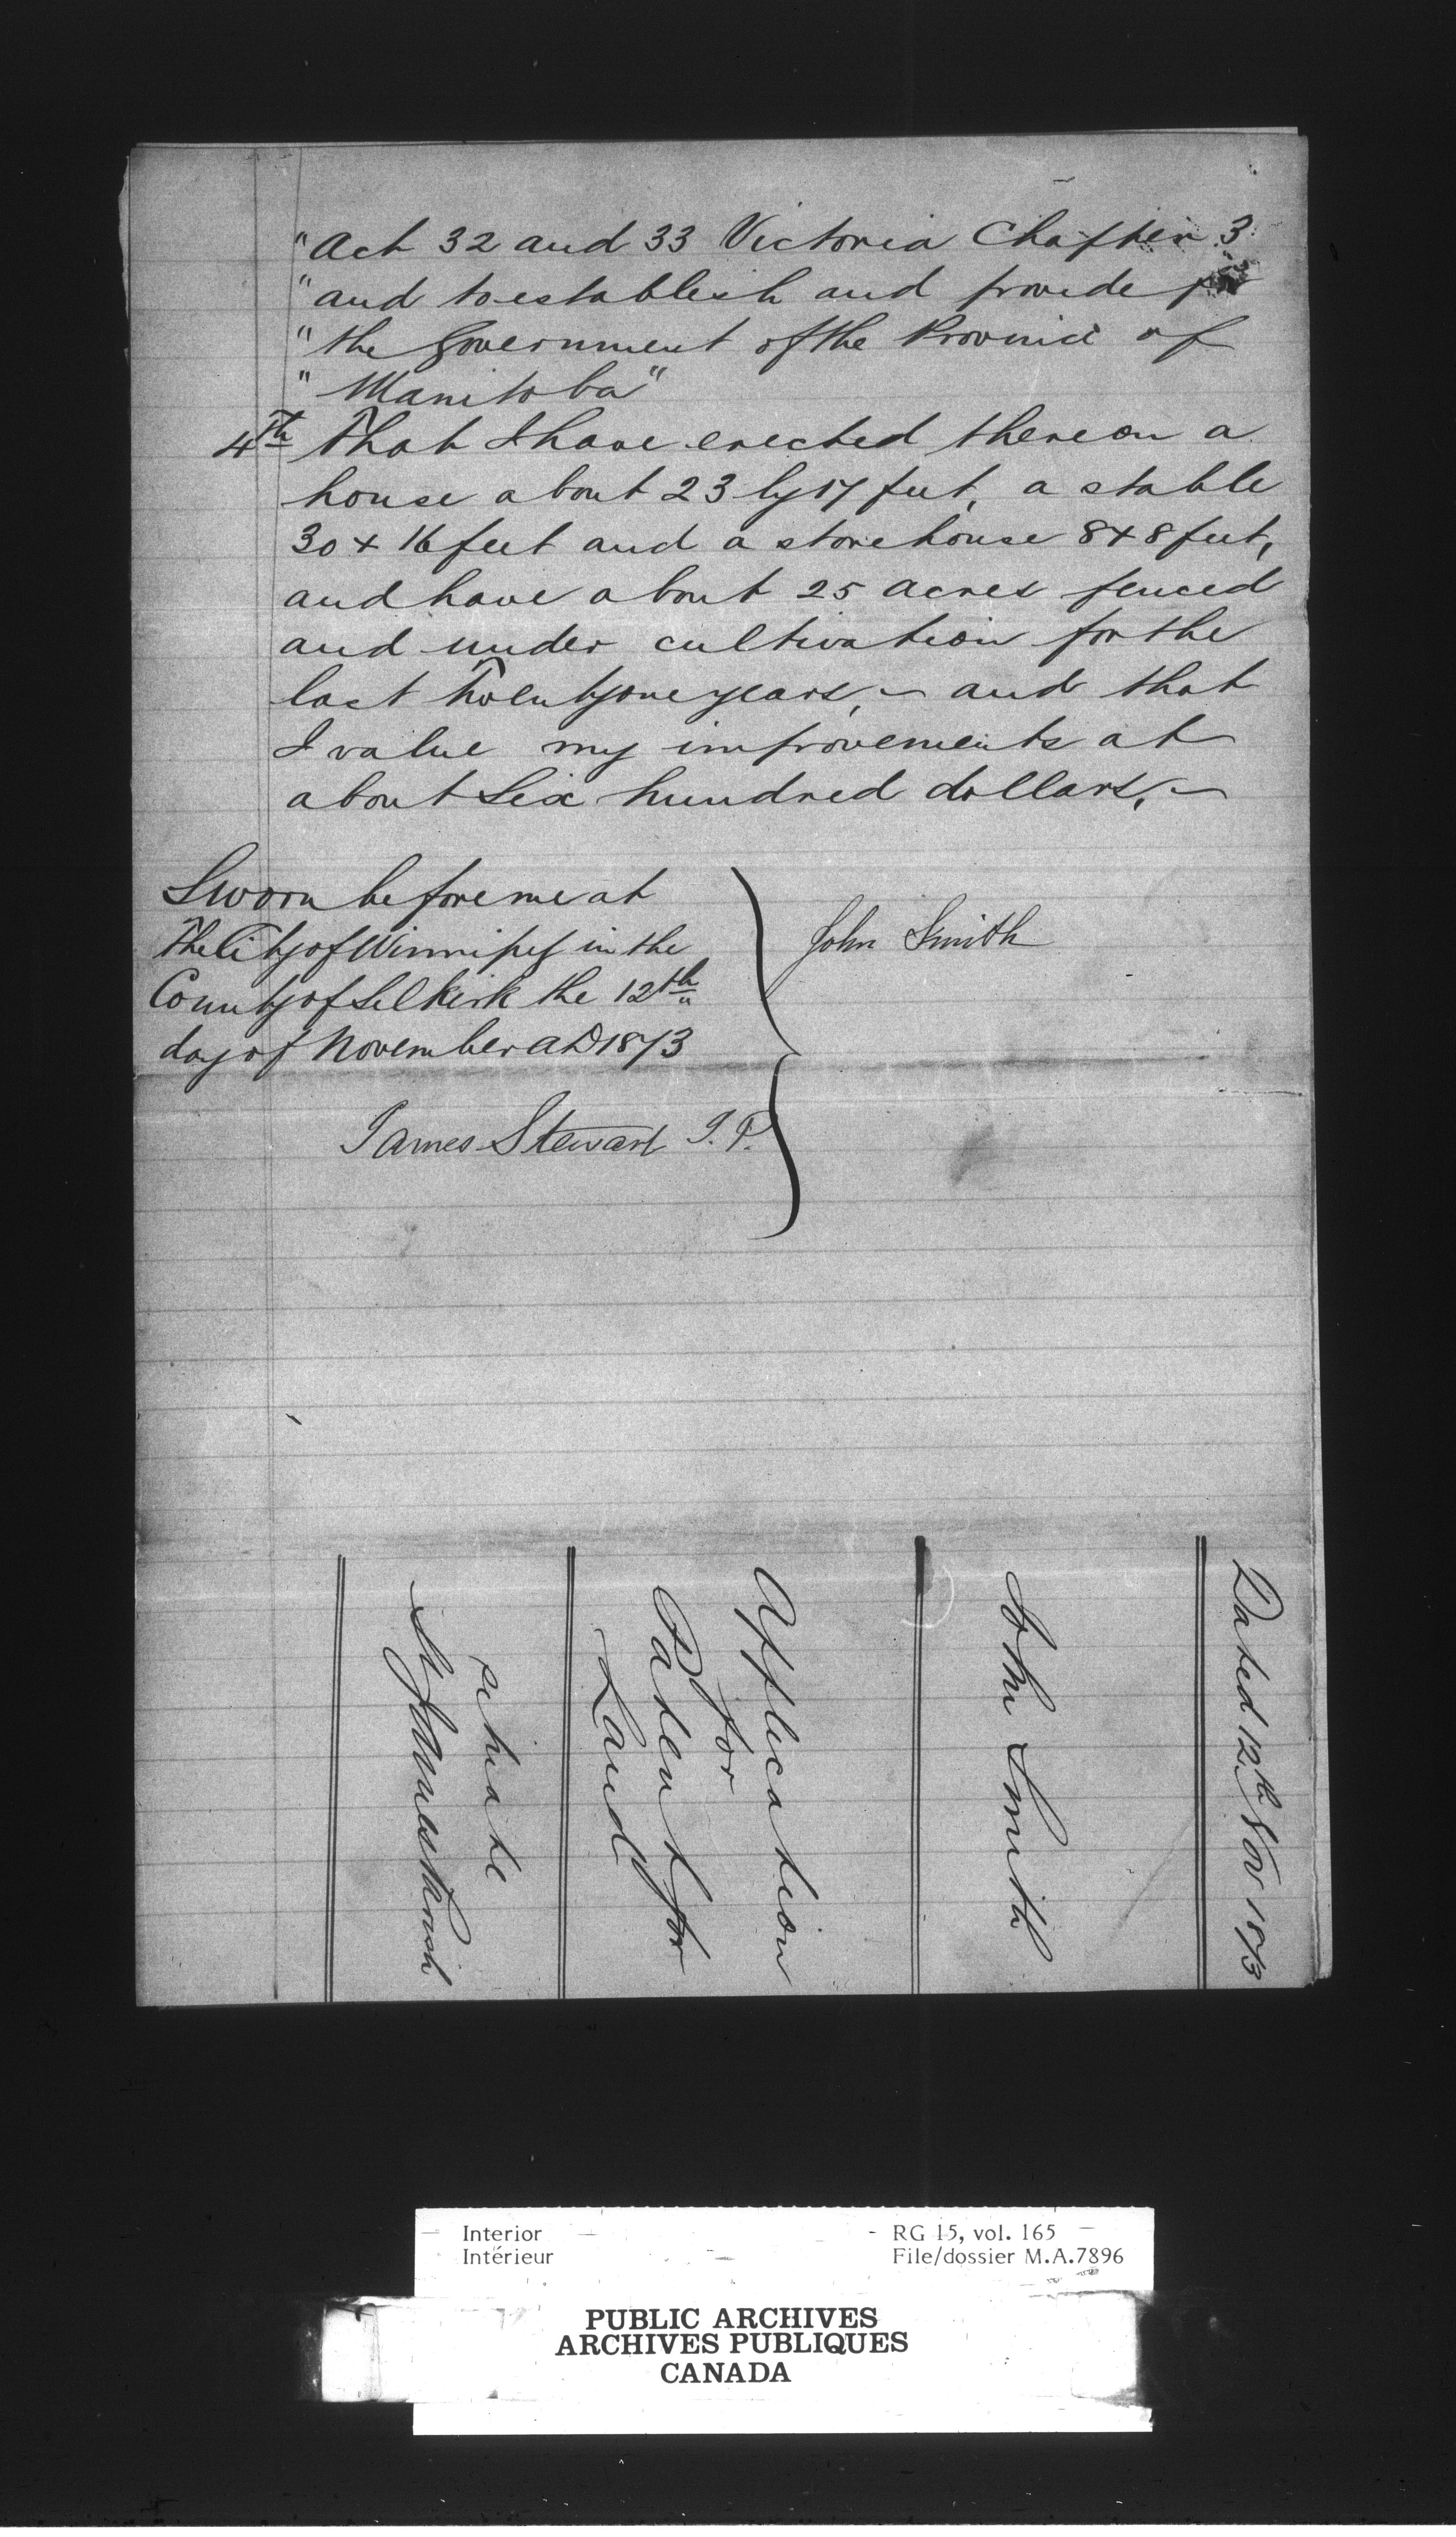 "Act 32 and 33 Victoria Chapter 3
"and to establish and provide for
"the Government of the Province of
"Manitoba"
4th That I have erected thereon a
house about 23 by 17 feet, a stable
30 x 16 feet and a storehouse 8 x 8 feet,
and have about 25 acres fenced
and under cultivation for the
last Twenty one years, - and that
I value my improvements at
about Six hundred dollars. -
Sworn before me at
The City of Winnipeg in the
County of Selkirk the 12th
day of November AD 1873
James Stewart J.P.
John Smith
Dated 12th Nov 1873
John Smith
Application
for
Patent for
Land
situate
St James Parish
Interior
Intérieur
RG 15, vol. 165
File/dossier M.A.7896
PUBLIC ARCHIVES
ARCHIVES PUBLIQUES
CANADA